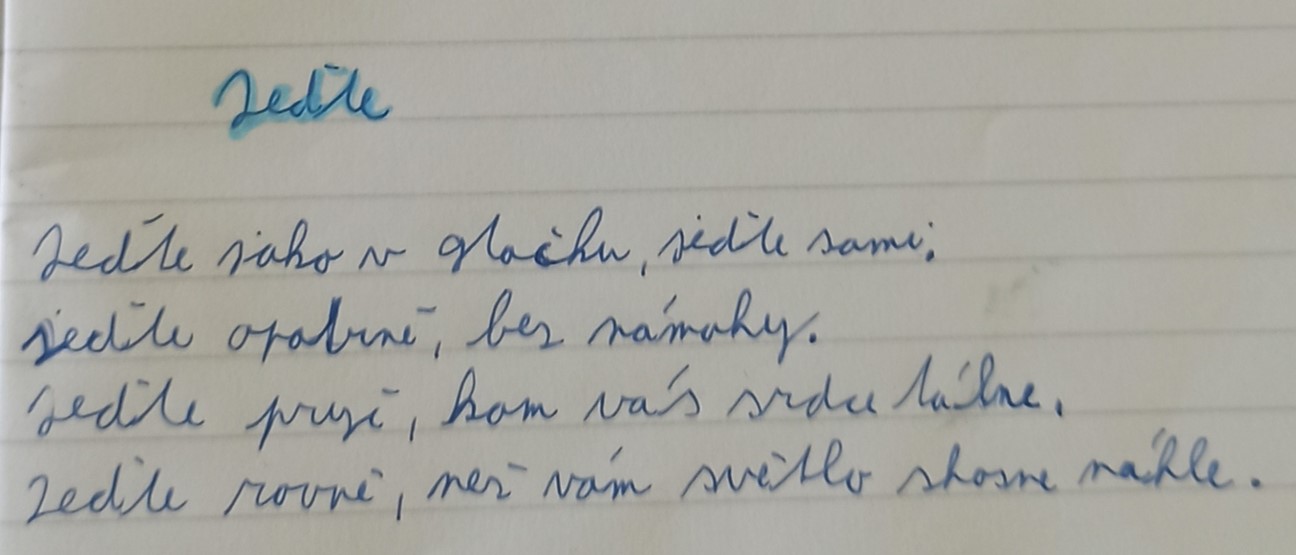 Jeďte
Jeďte jako v jeďte sami;
jeďte opatrně, bez námahy.
Jeďte pryč, kam vás srdce táhne.
Jeďte rovně, než vám světlo shasne náhle.